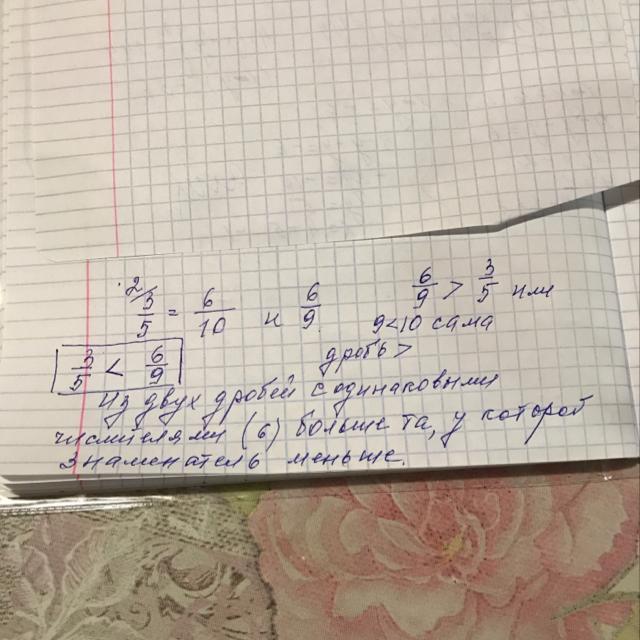 2/ 3/5 = 6/10 и 6/9 6/9 > 3/5 или
9<10 сама
3/5 < 6/9 дробь >
Из двух дробей с одинаковыми
числителями (6) больше та, у которой
знаменатель меньше.